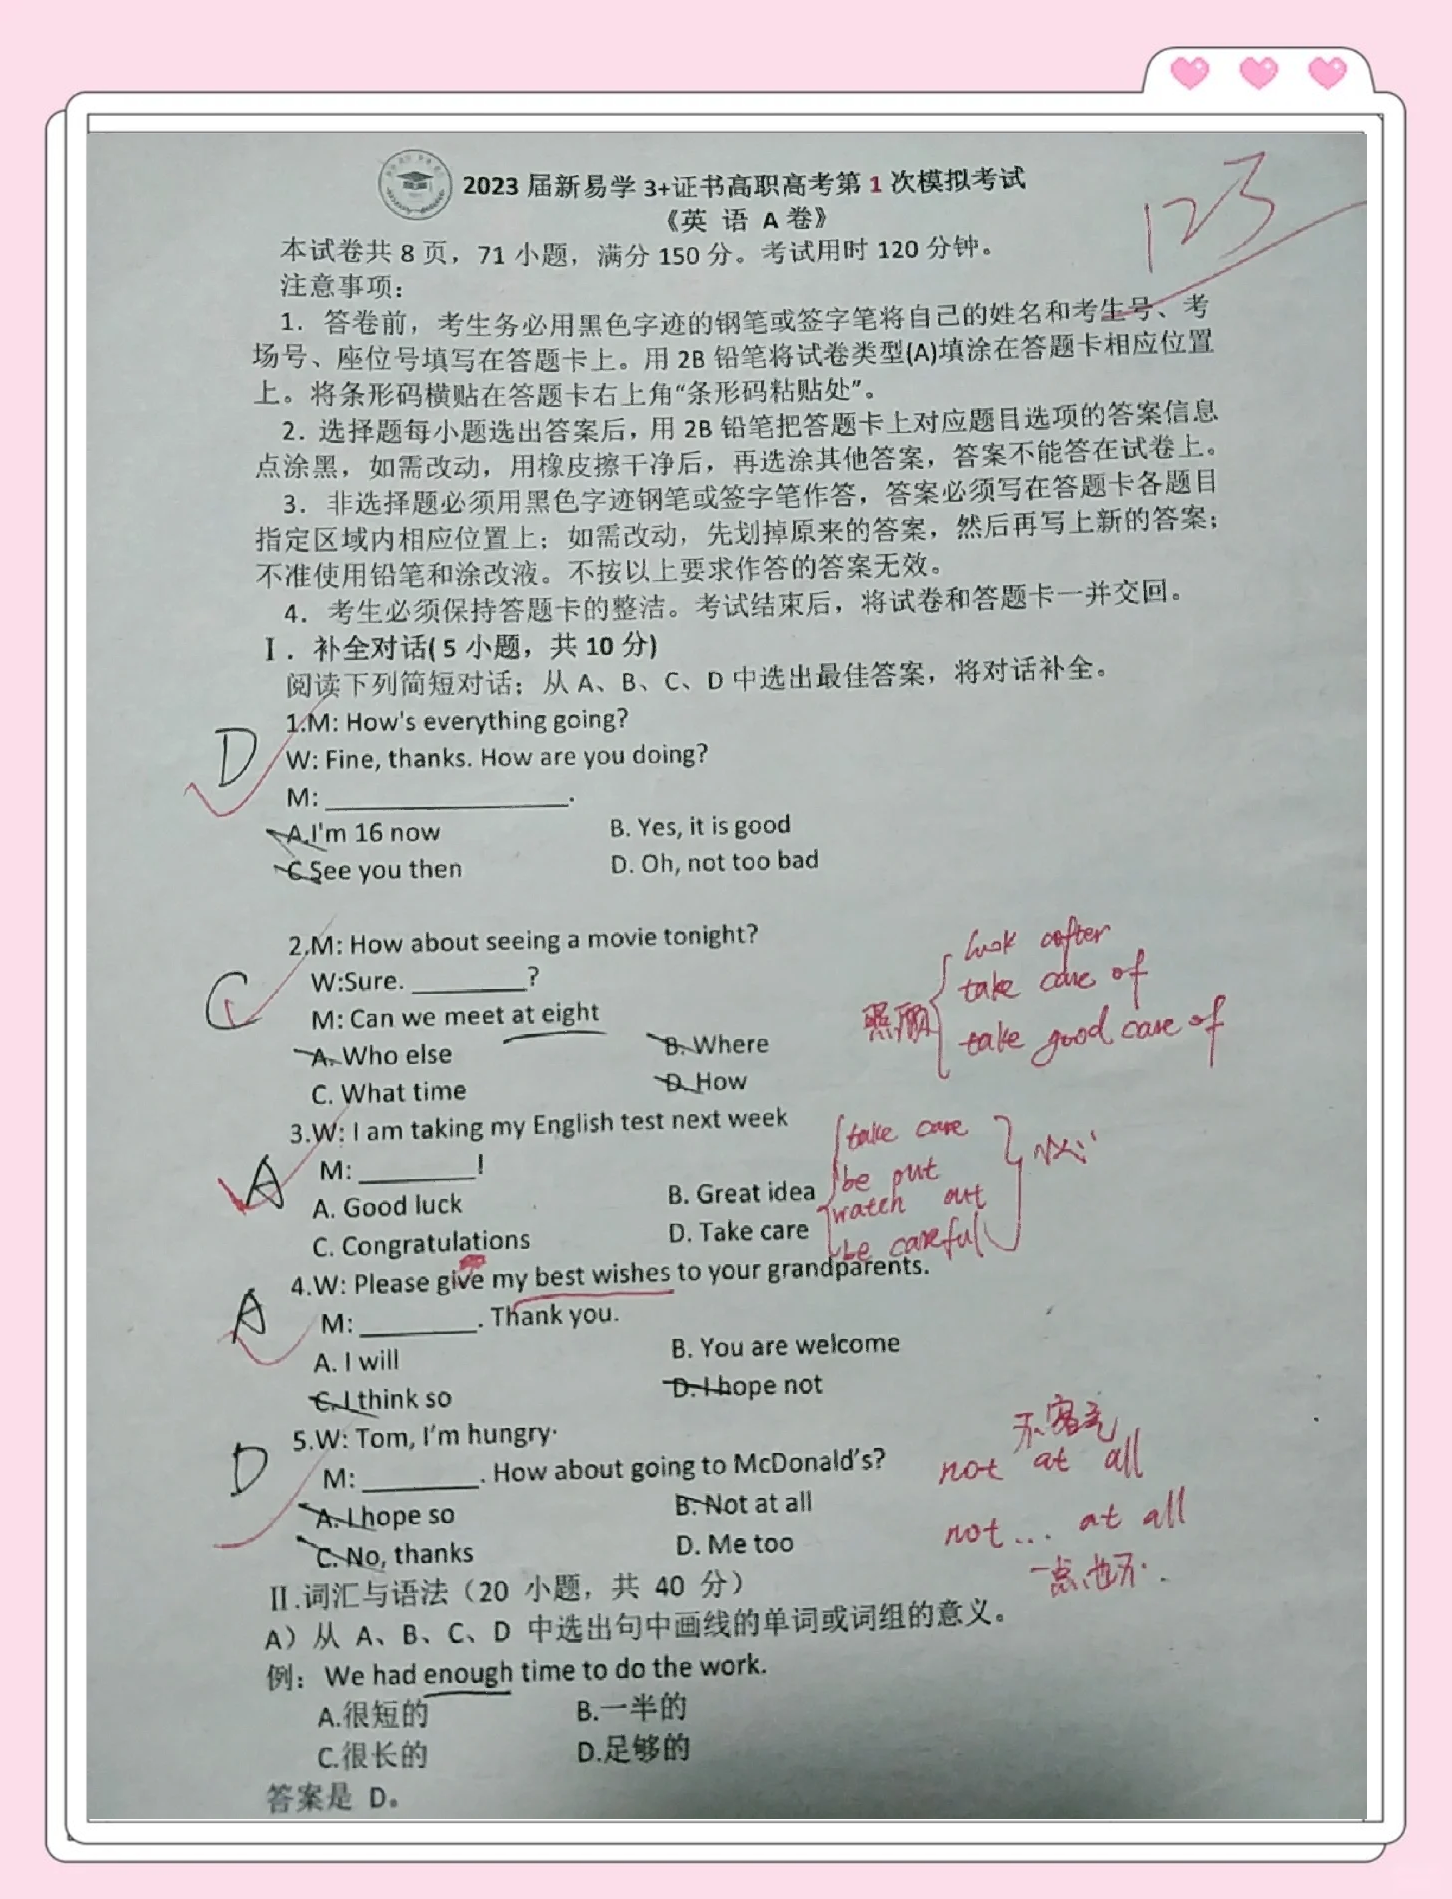 2023 届新易学 3+证书高职高考第 1 次模拟考试
《英 语 A 卷》
123
本试卷共 8 页，71 小题，满分 150 分。考试用时 120 分钟。
注意事项：
1．答卷前，考生务必用黑色字迹的钢笔或签字笔将自己的姓名和考生号、考
场号、座位号填写在答题卡上。用 2B 铅笔将试卷类型(A)填涂在答题卡相应位置
上。将条形码横贴在答题卡右上角“条形码粘贴处”。
2．选择题每小题选出答案后，用 2B 铅笔把答题卡上对应题目选项的答案信息
点涂黑，如需改动，用橡皮擦干净后，再选涂其他答案，答案不能答在试卷上。
3．非选择题必须用黑色字迹钢笔或签字笔作答，答案必须写在答题卡各题目
指定区域内相应位置上；如需改动，先划掉原来的答案，然后再写上新的答案；
不准使用铅笔和涂改液。不按以上要求作答的答案无效。
4．考生必须保持答题卡的整洁。考试结束后，将试卷和答题卡一并交回。
Ⅰ．补全对话( 5 小题，共 10 分)
阅读下列简短对话；从 A、B、C、D 中选出最佳答案，将对话补全。
D
1.M: How's everything going?
W: Fine, thanks. How are you doing?
M: ________________.
A.I'm 16 now B. Yes, it is good
C.See you then D. Oh, not too bad
C
2.M: How about seeing a movie tonight?
W:Sure. ________?
M: Can we meet at eight
A. Who else B. Where
C. What time D. How
照顾
look after
take care of
take good care of
A
3.W: I am taking my English test next week
M: ________!
A. Good luck B. Great idea
C. Congratulations D. Take care
take care
be out
watch out
be careful
小心
A
4.W: Please give my best wishes to your grandparents.
M: ________. Thank you.
A. I will B. You are welcome
C. I think so D. I hope not
D
5.W: Tom, I'm hungry·
M: ________. How about going to McDonald's?
A. I hope so B. Not at all
C. No, thanks D. Me too
不客气
not at all
not... at all
一点也不.
Ⅱ.词汇与语法（20 小题，共 40 分）
A）从 A、B、C、D 中选出句中画线的单词或词组的意义。
例：We had enough time to do the work.
A.很短的 B.一半的
C.很长的 D.足够的
答案是 D。